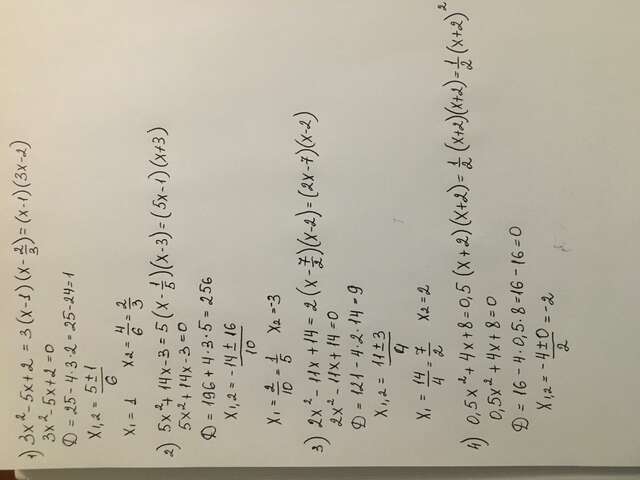 1) 3x²-5x+2 = 3(x-1)(x-2/3)=(x-1)(3x-2)
3x²-5x+2=0
D=25-4·3·2=25-24=1
x1,2 = (5±1)/6
x1=1 x2=4/6=2/3
2) 5x²+14x-3=5(x-1/5)(x-3)=(5x-1)(x+3)
5x²+14x-3=0
D=196+4·3·5=256
x1,2=(-14±16)/10
x1=2/10=1/5 x2=-3
3) 2x²-11x+14=2(x-7/2)(x-2)=(2x-7)(x-2)
2x²-11x+14=0
D=121-4·2·14=9
x1,2=(11±3)/4
x1=14/4=7/2 x2=2
4) 0,5x²+4x+8=0,5(x+2)(x+2)=1/2(x+2)(x+2)=1/2(x+2)²
0,5x²+4x+8=0
D=16-4·0,5·8=16-16=0
x1,2=(-4±0)/2=-2